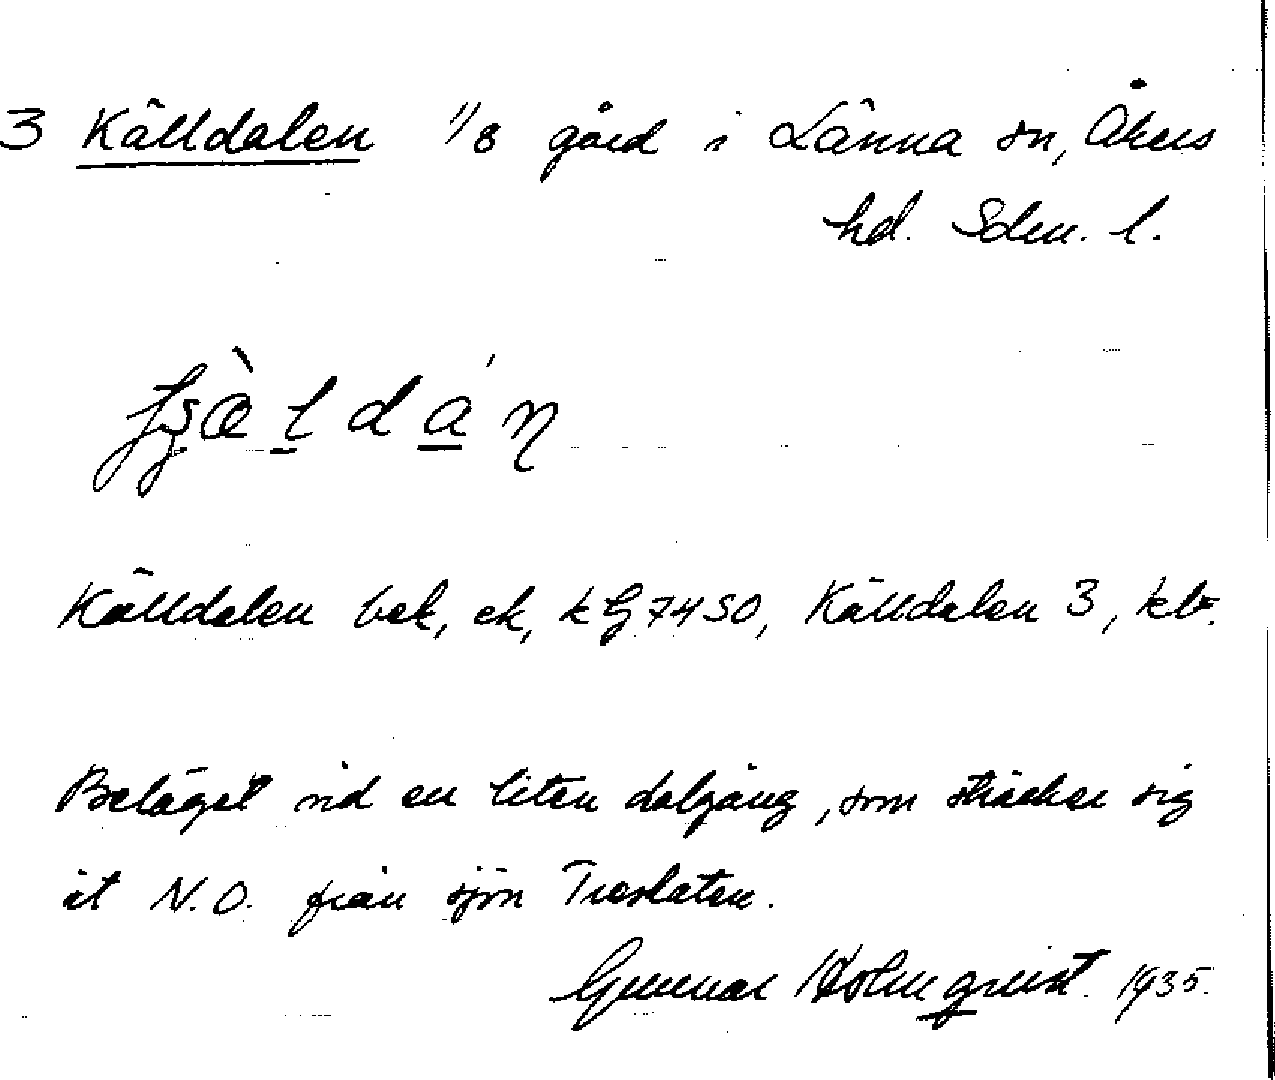 3 Källdalen 1/8 gård i Länna sn, Åkers
hd. Sdm. l.
Källdalen bek, ek, kG 7450, Källdalen 3, kb.
Beläget vid en liten dalgång, som sträcker sig
åt N.O. från sjön Trestaten.
Gunnar Holmqvist. 1935.